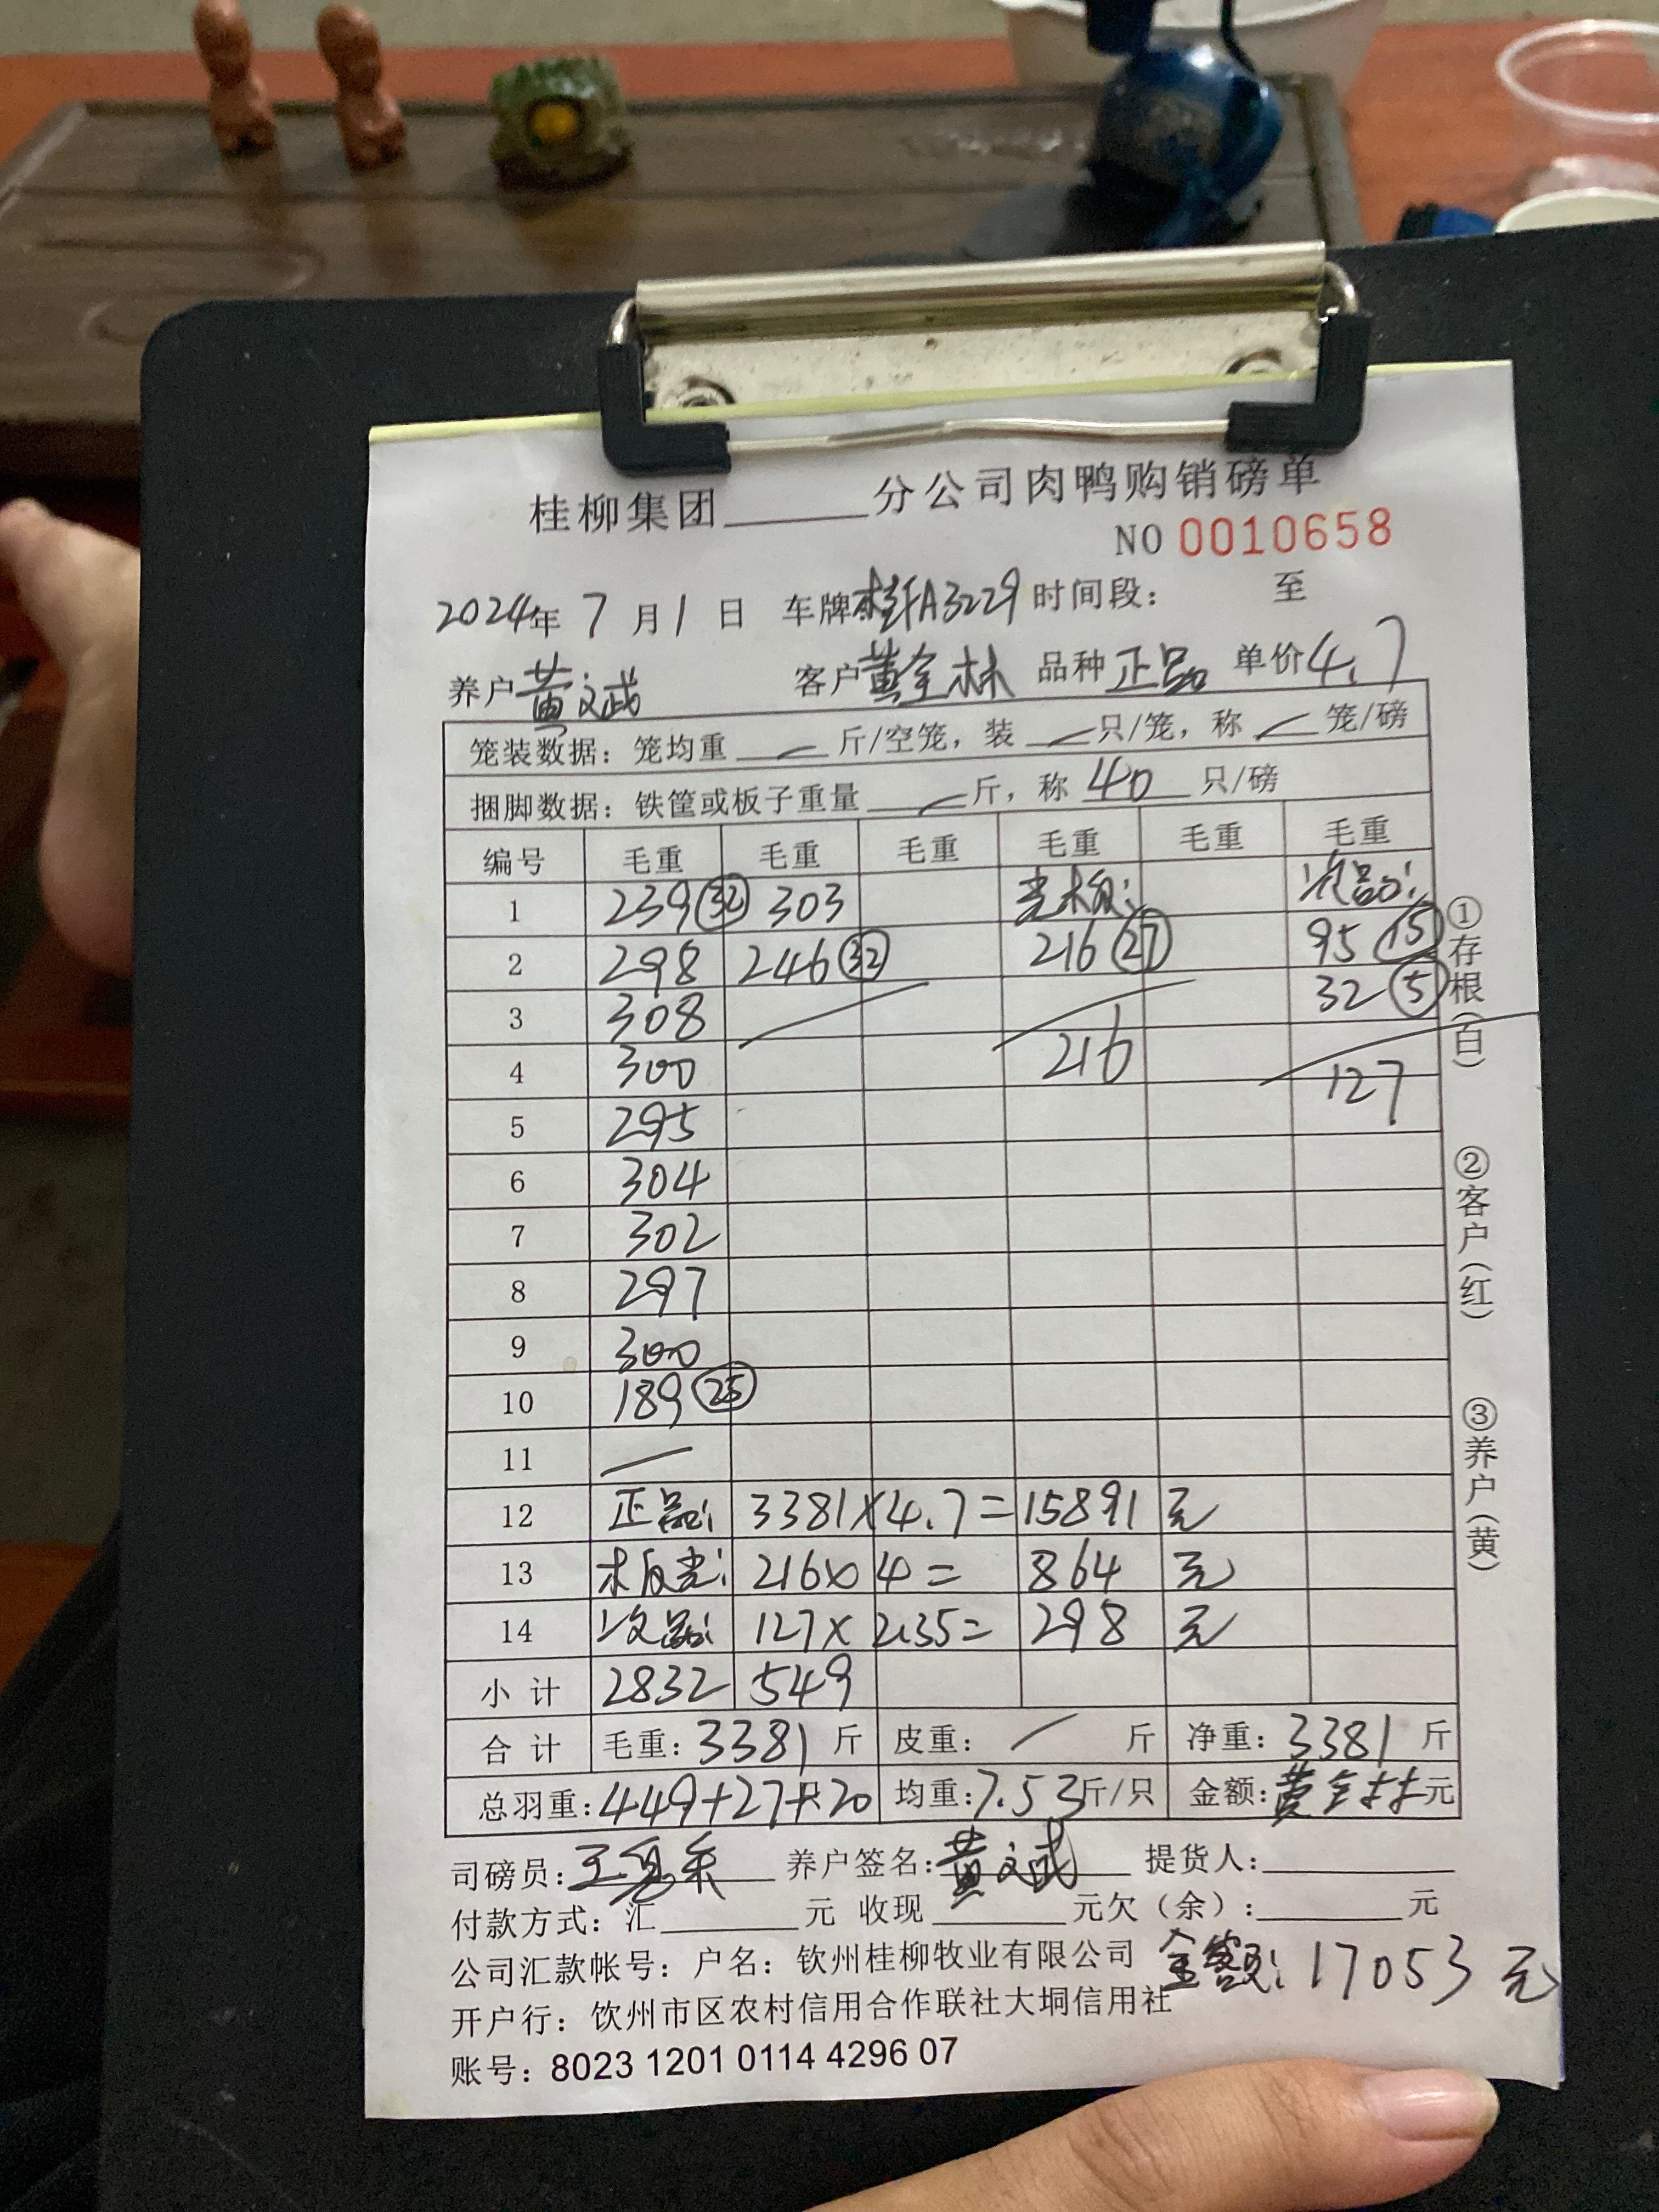 桂柳集团______分公司肉鸭购销磅单
NO 0010658
2024年 7 月 1 日 车牌 A3229 时间段: 至
养户 黄文斌 客户 黄全林 品种 正品 单价 4.7
笼装数据: 笼均重 — 斤/空笼, 装 — 只/笼, 称 — 笼/磅
捆脚数据: 铁筐或板子重量 — 斤, 称 40 只/磅
编号 毛重 毛重 毛重 毛重 毛重 毛重
1 239 (32) 303 次品:
2 298 246 (32) 216 (27) 95 (15)
3 308 32 (5)
4 300 216 127
5 295
6 304
7 302
8 297
9 300
10 189 (25)
11 —
12 正品: 3381×4.7=15891 元
13 216×4= 864 元
14 次品: 127×2.35= 298 元
小计 2832 549
合计 毛重: 3381 斤 皮重: / 斤 净重: 3381 斤
总羽重: 449+27+20 只 均重: 7.53 斤/只 金额: 黄全林 元
司磅员: 养户签名: 黄文斌 提货人:
付款方式: 汇______元 收现______元欠(余):______元
公司汇款帐号: 户名: 钦州桂柳牧业有限公司
金额: 17053 元
开户行: 钦州市区农村信用合作联社大垌信用社
账号: 8023 1201 0114 4296 07
①存根(白) ②客户(红) ③养户(黄)